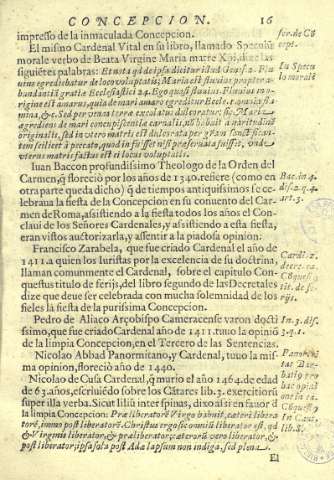 CONCEPCION. 16
impresso de la inmaculada Concepcion.
El mismo Cardenal Vital en su libro, llamado Speculũ
morale verbo de Beata Virgine Maria matre Xpi, dize las
siguiẽtes palabras: Et nota qd de ipsa dicitur illud Genes. 2. Flu
uius egrediebatur de loco voluptatis; Maria est fluuius propter a-
bundantiã gratiæ Ecclesiastici 24. Ego quasi fluuius. Fluuius
origine est amarus, quia de mari amaro egreditur Eccle. 1.
&c. Sed per venas terræ exculatus dulcoratur: sic Maria
agrediens de mari concupiscentiæ carnalis,
originalis, sed in vtero matris est dulcorata per gram sanctificantem
scilicet à peccato, quod in fuisset nisi præseruata fuisset, vnde
vterus matris factus est ei locus voluptatis.
Iuan Baccon profundissimo Theologo de la Orden del
Carmen, q̃ floreciò por los años de 1340. refiere (como en
otra parte queda dicho) q̃ de tiempos antiquissimos se ce-
lebraua la fiesta de la Concepcion en su conuento del Carmen
de Roma, assistiendo a la fiesta todos los años el Con-
claui de los Señores Cardenales, y assistiendo a esta fiesta,
eran vistos auctorizarla, y assentir a la piadosa opinion.
Francisco Zarabela, que fue criado Cardenal el año de
1411. a quien los Iuristas por la excelencia de su doctrina,
llaman communmente el Cardenal, sobre el capitulo Con-
questus titulo de ferijs, del libro segundo de las Decretales
dize que deue ser celebrada con mucha solemnidad de los
fieles la fiesta de la purissima Concepcion.
Pedro de Aliaco Arçobispo Cameracense varon doctis
simo, que fue criado Cardenal año de 1411. tuuo la opiniõ
de la limpia Concepcion, en el Tercero de las Sentencias.
Nicolao Abbad Panormitano, y Cardenal, tuuo la mis-
ma opinion, floreciò año de 1440.
Nicolao de Cusa Cardenal, q̃ murio el año 1464. de edad
de 63. años, escriuiẽdo sobre los Cãtares lib. 3. exercitiorũ
super illa verba. Sicut liliũ inter spinas, dixo assi en fauor d̃
la limpia Concepcion: Præ liberatorẽ Virgo habuit, cæteri libera
torẽ, immo post liberatorẽ. Christus ergo sic omniũ liberator est, qd
& Virginis liberator, & præliberator; cæterorũ vero liberator, &
post liberator; ipsa sola post Adæ lapsum non indiga, sed plena.
El
In Specu
lo morale
Bac. in 4.
dist. 2. q. 4.
art. 3.
tit. de fe-
rijs.
In 3. dist.
3. q. 1.
lib. 8.